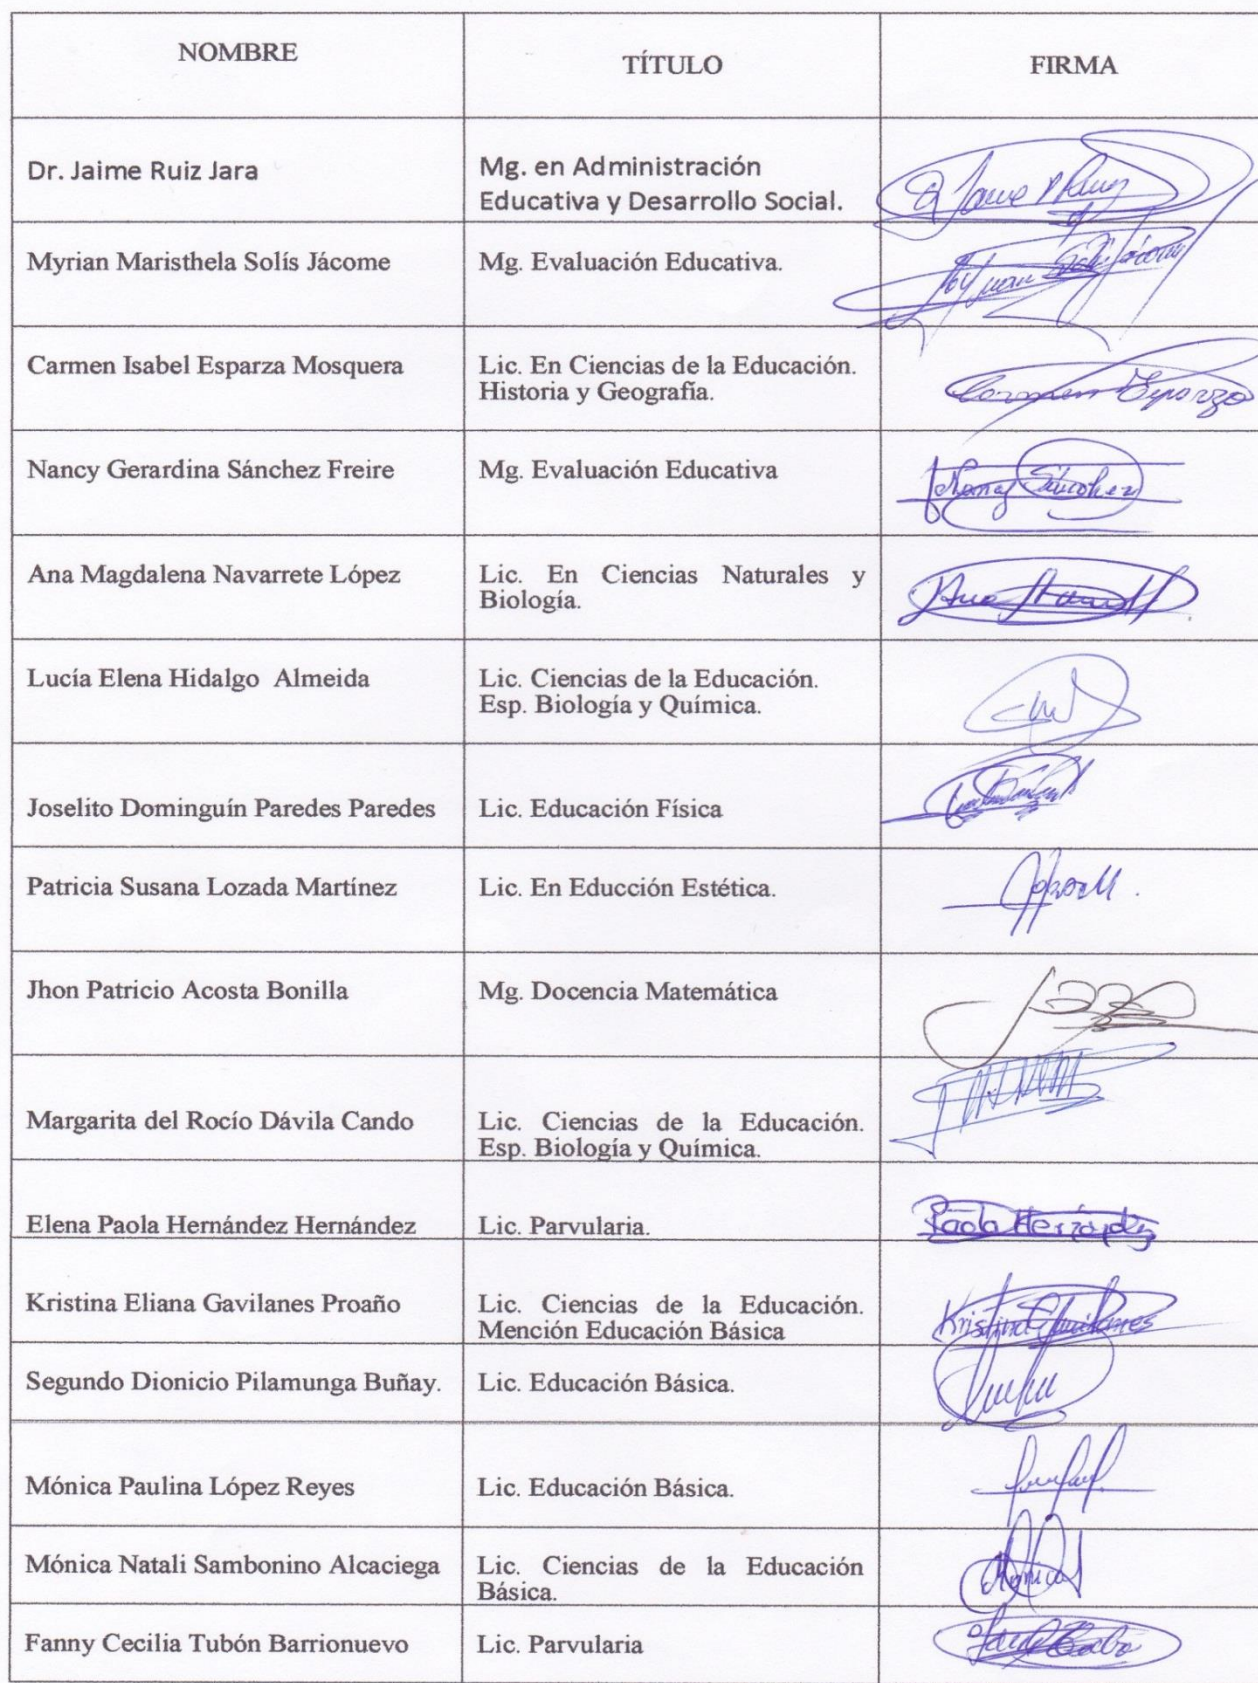 NOMBRE TÍTULO FIRMA
Dr. Jaime Ruiz Jara Mg. en Administración
Educativa y Desarrollo Social.
Myrian Maristhela Solís Jácome Mg. Evaluación Educativa.
Carmen Isabel Esparza Mosquera Lic. En Ciencias de la Educación.
Historia y Geografía.
Carmen Esparza
Nancy Gerardina Sánchez Freire Mg. Evaluación Educativa
Nancy Sánchez
Ana Magdalena Navarrete López Lic. En Ciencias Naturales y
Biología.
Ana
Lucía Elena Hidalgo Almeida Lic. Ciencias de la Educación.
Esp. Biología y Química.
Joselito Dominguín Paredes Paredes Lic. Educación Física
Patricia Susana Lozada Martínez Lic. En Educción Estética.
Jhon Patricio Acosta Bonilla Mg. Docencia Matemática
Margarita del Rocío Dávila Cando Lic. Ciencias de la Educación.
Esp. Biología y Química.
Elena Paola Hernández Hernández Lic. Parvularia.
Paola Hernández
Kristina Eliana Gavilanes Proaño Lic. Ciencias de la Educación.
Mención Educación Básica
Kristina Gavilanes
Segundo Dionicio Pilamunga Buñay. Lic. Educación Básica.
Mónica Paulina López Reyes Lic. Educación Básica.
Mónica Natali Sambonino Alcaciega Lic. Ciencias de la Educación
Básica.
Mónica
Fanny Cecilia Tubón Barrionuevo Lic. Parvularia